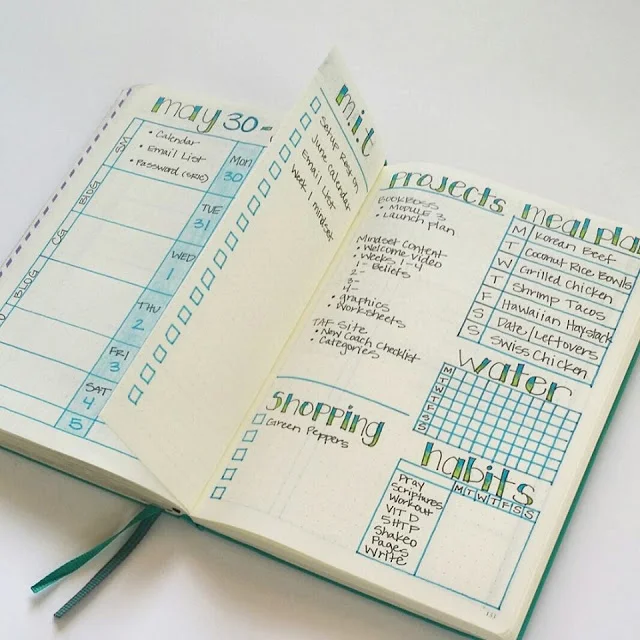 may 30 -
• Calendar
• Email List
• Password (GRIC)
SW
BLOG
CG
BLOG
Mon 30
TUE 31
WED 1
THU 2
FRI 3
SAT 4
5
m.i.t
June calendar
Email List
Week 1 mindset
projects
BOOKBOSS
• Module 3
• Launch plan
Mindset Content
• Welcome video
• Weeks 1-4
1- Beliefs
2-
3-
4-
• graphics
• Worksheets
TAF SITE
• New Coach Checklist
• Categories
shopping
Green Peppers
meal plan
M Korean Beef
T Coconut Rice Bowls
W Grilled Chicken
T Shrimp Tacos
F Hawaiian Haystack
S Date/Leftovers
S Swiss Chicken
water
M
T
W
T
F
S
S
habits
M T W T F S S
Pray
Scriptures
Workout
VIT D
5HTP
Shakeo
Pages
Write